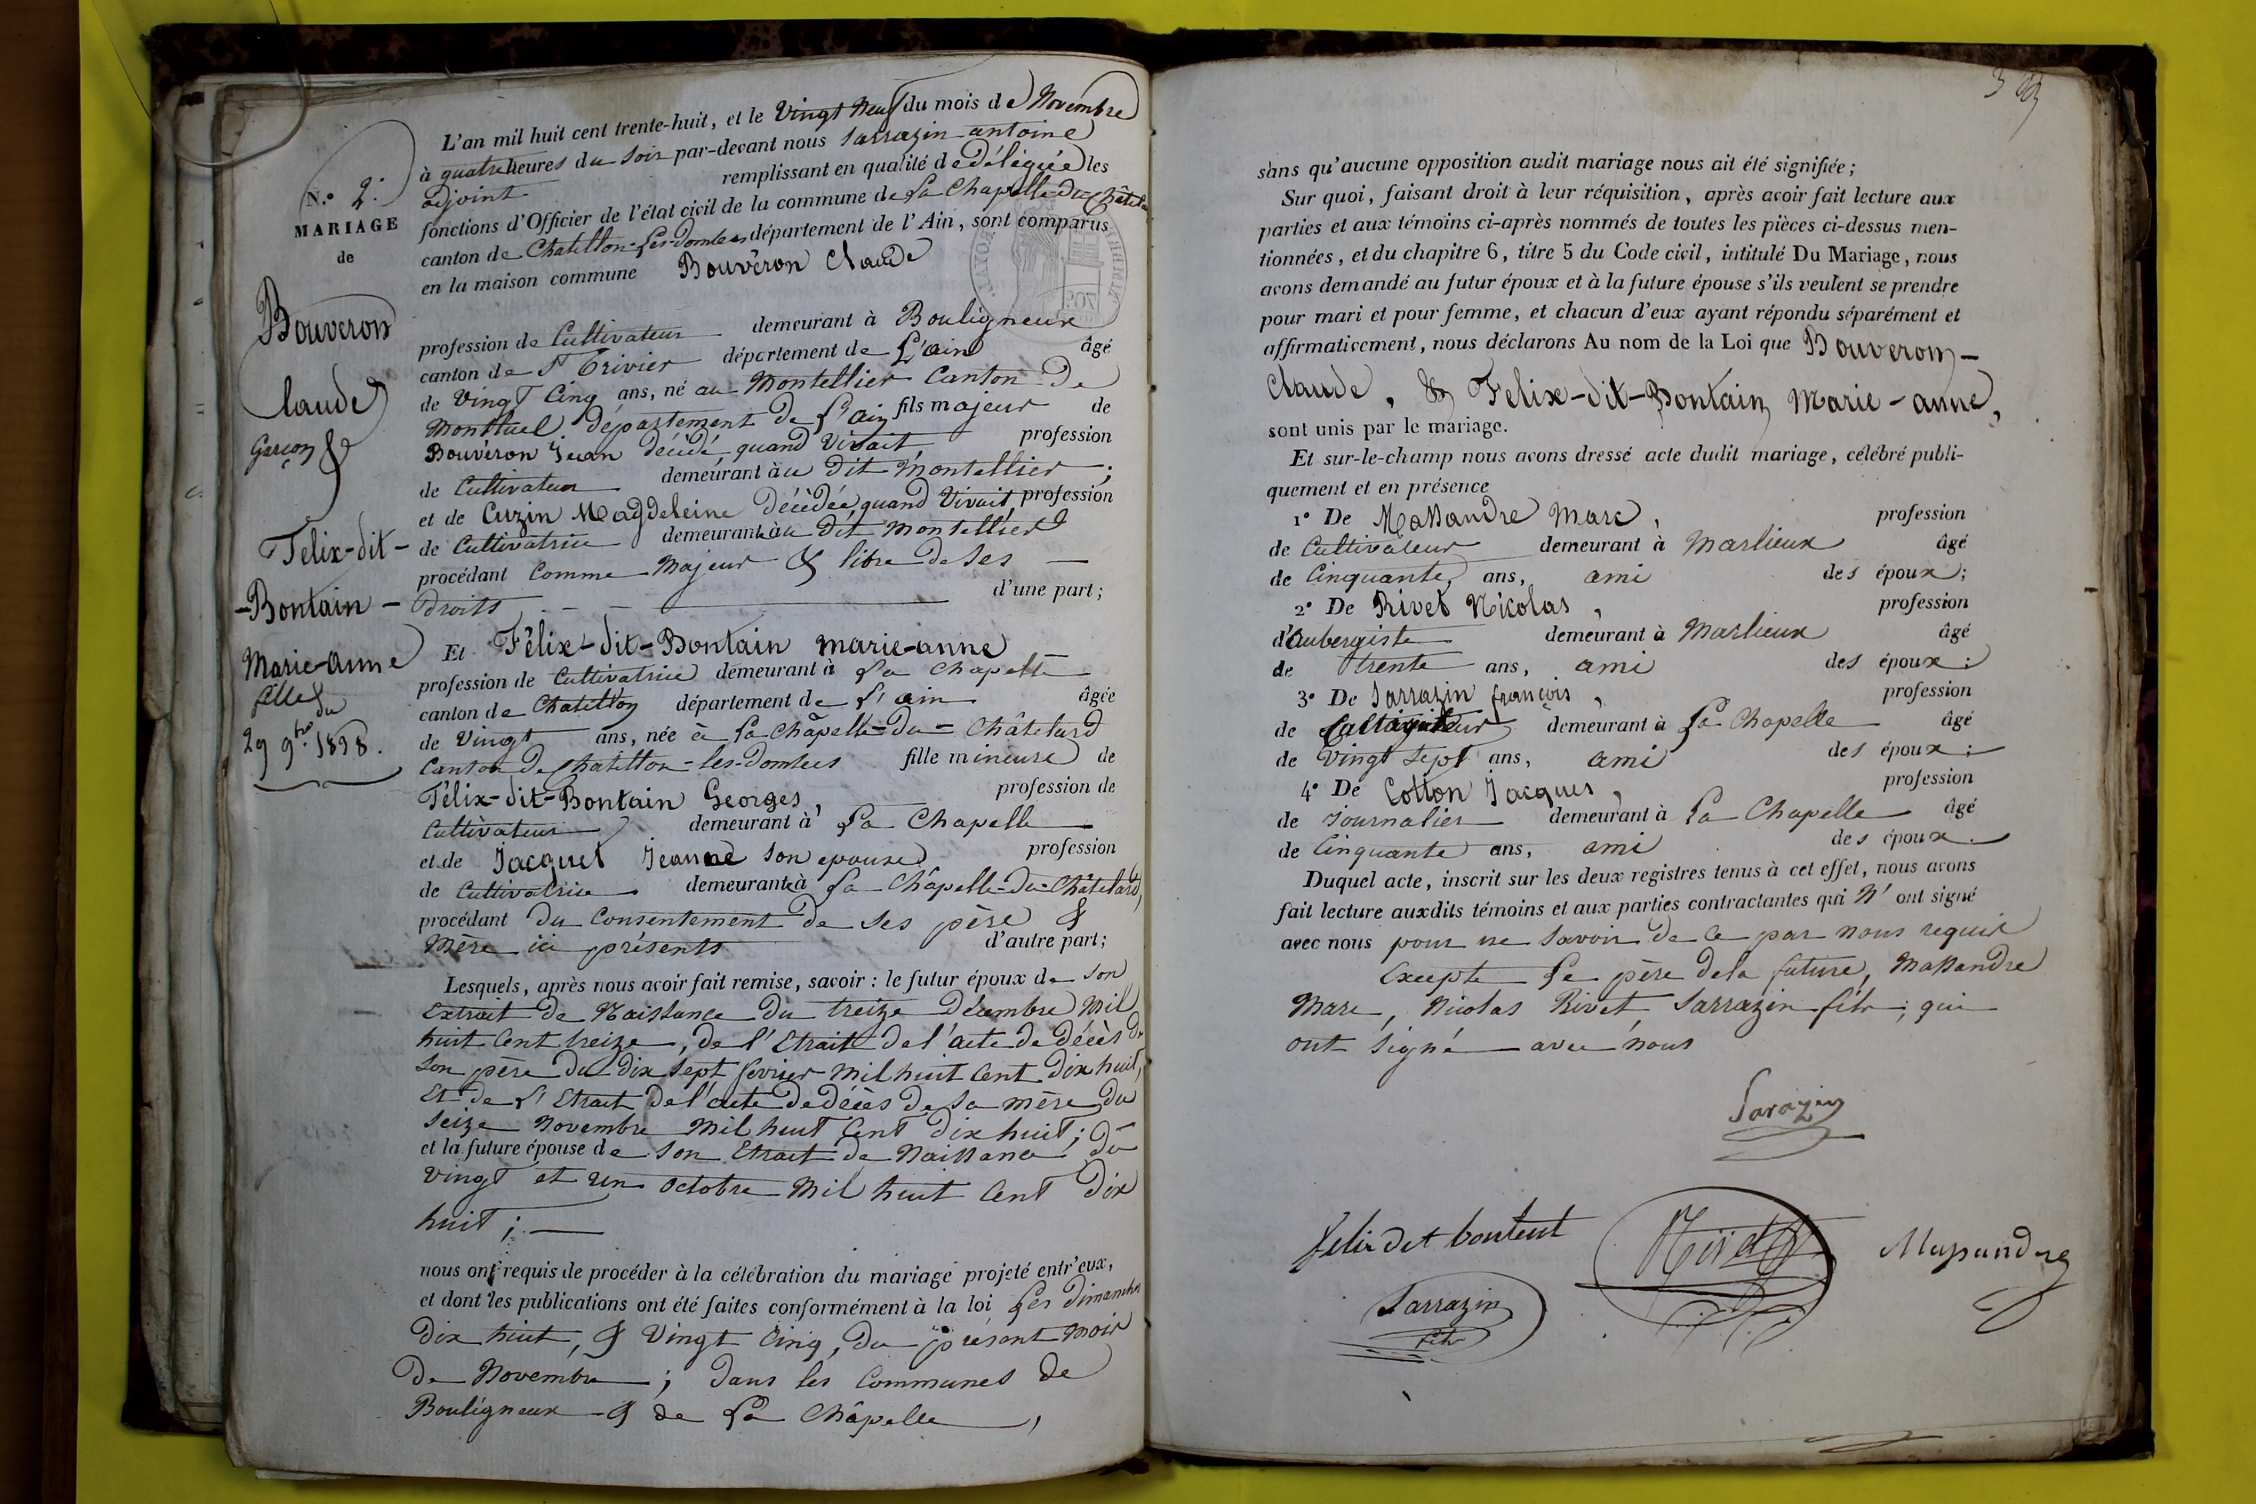 N.° 2.
MARIAGE
de
Bouveron
Claude
Garçon &
Felix-dit-
-Bontain-
Marie-anne
fille
du
29 9bre 1838.
L'an mil huit cent trente-huit, et le Vingt Neuf du mois de Novembre
à quatre heures du soir par-devant nous Sarrazin antoine
adjoint remplissant en qualité de déléguée les
fonctions d'Officier de l'état civil de la commune de La Chapelle-du-Châtelard
canton de Chatillon-Les-Dombes département de l'Ain, sont comparus
en la maison commune Bouvéron Claude
profession de Cultivateur demeurant à Bouligneux
canton de St Trivier département de L'ain âgé
de Vingt Cinq ans, né au Montellier Canton De
Montluel département de L'ain fils majeur de
Bouvéron Jean décédé quand Vivait profession
de Cultivateur demeurant au dit Montellier ;
et de Cuzin Magdeleine Décédée quand Vivait profession
de Cultivatrice demeurante au Dit Montellier
procédant Comme Majeur & libre de ses
droits d'une part;
Et Félix-dit-Bontain marie-anne
profession de Cultivatrice demeurant à La Chapelle
canton de Chatillon département de L'ain âgée
de Vingt ans, née à La Chapelle-Du-Châtelard
Canton De Chatillon-les-Dombes fille mineure de
Félix-dit-Bontain Georges, profession de
Cultivateur demeurant à La Chapelle
et de Jacquet Jeanne son epouse profession
de Cultivatrice demeurante à La Châpelle-Du-Châtelard,
procédant du Consentement de ses père &
Mère ici présents d'autre part;
Lesquels, après nous avoir fait remise, savoir : le futur époux de son
Extrait de Naissance du treize Décembre Mil
huit Cent treize, de l'Etrait de l'acte de décès de
son père du dix sept février mil huit Cent Dix huit,
Et de L'Etrait de l'acte de décès de sa mère du
seize Novembre Mil huit Cent dix huit ;
et la future épouse de son Etrait de Naissance du
vingt et un octobre Mil huit Cent dix
huit ;
nous ont requis de procéder à la célébration du mariage projeté entr'eux,
et dont les publications ont été faites conformément à la loi Les dimanches
Dix huit, & Vingt Cinq, du présent mois
De Novembre ; dans les Communes de
Bouligneux & de La Châpelle ,
sans qu'aucune opposition audit mariage nous ait été signifiée ;
Sur quoi, faisant droit à leur réquisition, après avoir fait lecture aux
parties et aux témoins ci-après nommés de toutes les pièces ci-dessus men-
tionnées, et du chapitre 6, titre 5 du Code civil, intitulé Du Mariage, nous
avons demandé au futur époux et à la future épouse s'ils veulent se prendre
pour mari et pour femme, et chacun d'eux ayant répondu séparément et
affirmativement, nous déclarons Au nom de la Loi que Bouveron-
Claude, & Felix-dit-Bontain Marie-anne,
sont unis par le mariage.
Et sur-le-champ nous avons dressé acte dudit mariage, célébré publi-
quement et en présence
1° De Massandre Marc, profession
de Cultivateur demeurant à Marlieux âgé
de Cinquante ans, ami des époux;
2° De Rivet Nicolas, profession
d'aubergiste demeurant à Marlieux âgé
de trente ans, ami des époux;
3° De Sarrazin françois, profession
de Cultivateur demeurant à La Chapelle âgé
de Vingt sept ans, ami des époux;
4° De Cotton Jacques, profession
de Journalier demeurant à La Chapelle âgé
de Cinquante ans, ami des époux.
Duquel acte, inscrit sur les deux registres tenus à cet effet, nous avons
fait lecture auxdits témoins et aux parties contractantes qui N'ont signé
avec nous pour ne savoir de ce par nous requis
Excepte Le père de la future, Massandre
Marc, Nicolas Rivet, Sarrazin fils, qui
ont signé avec nous
Sarazin
felix dit bontent
Rivet
Massandre
Sarrazin
fils